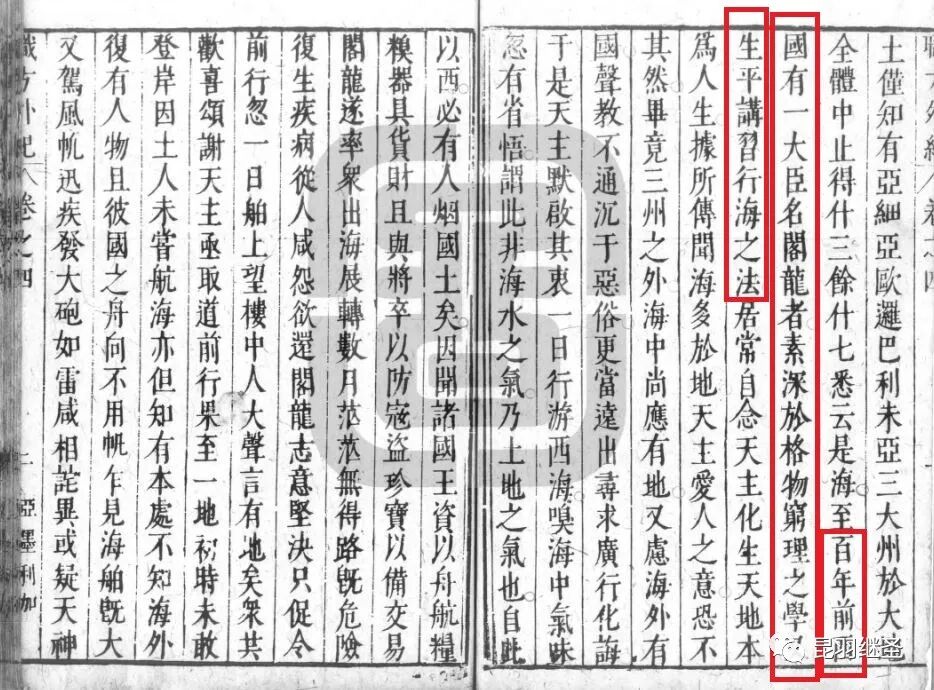 土僅知有亞細亞歐邏巴利未亞三大州於大地
全體中止得什三餘什七悉云是海至百年前西
國有一大臣名閣龍者素深於格物窮理之學
生平講習行海之法居常自念天主化生天地本
為人生據所傳聞海多於地天主愛人之意恐不
其然畢竟三州之外海中尚應有地又慮海外有
國聲教不通沉于惡俗更當遠出尋求廣行化誨
于是天主默啟其衷一日行游西海嗅海中氣味
忽有省悟謂此非海水之氣乃土地之氣也自此
以西必有人烟國土矣因聞諸國王資以舟航糧
糗器具貨財且與將卒以防寇盜珍寶以備交易
閣龍遂率衆出海展轉數月茫茫無得路既危險
復生疾病從人咸怨欲還閣龍志意堅決只促令
前行忽一日舶上望樓中人大聲言有地矣衆共
歡喜頌謝天主亟取道前行果至一地初時未敢
登岸因土人未嘗航海亦但知有本處不知海外
復有人物且彼國之舟向不用帆乍見海舶既大
又駕風帆迅疾發大砲如雷咸相詫異或疑天神
職方外紀 卷之四 二 亞墨利加
昆羽继圣